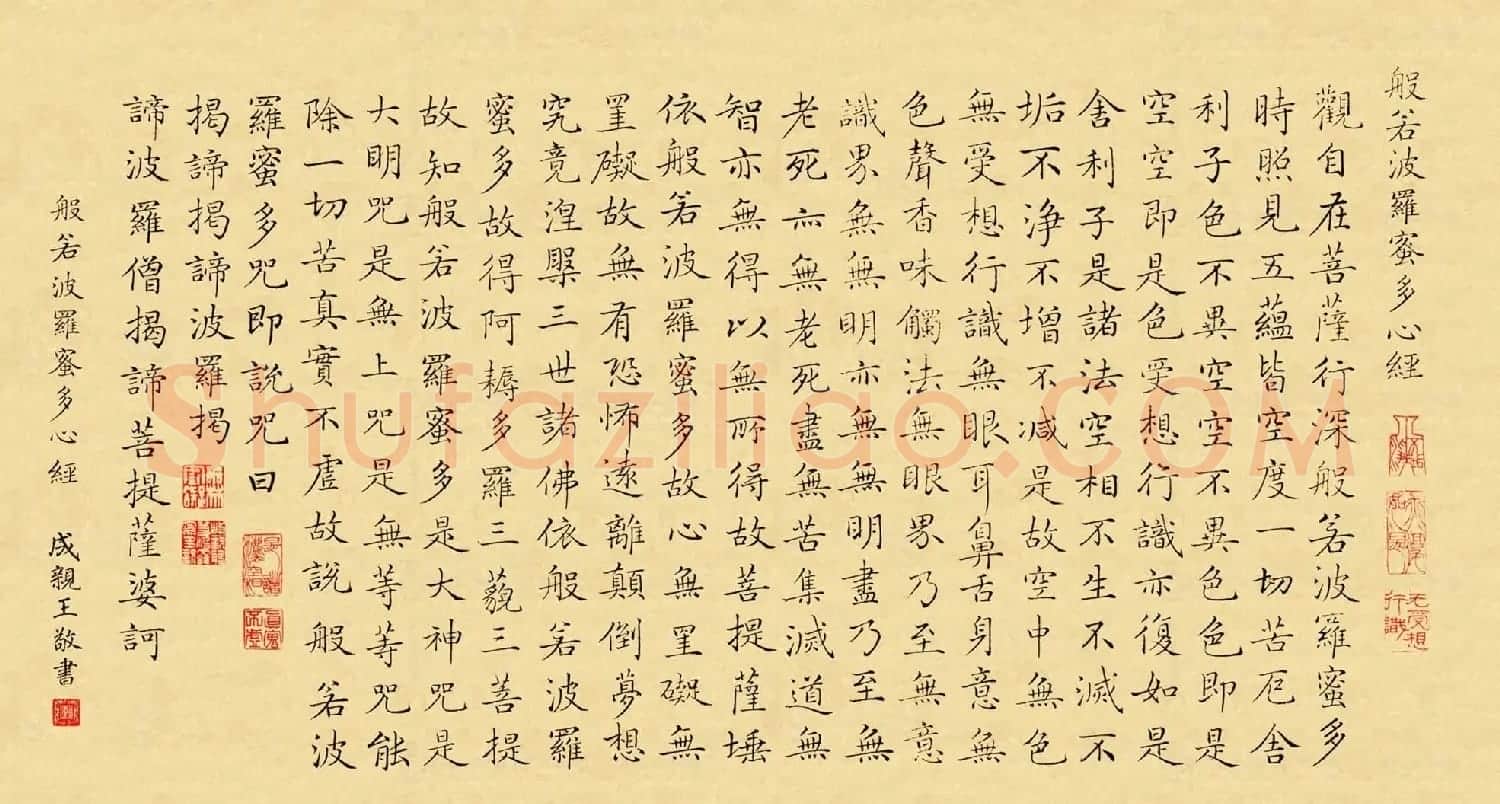 般若波羅蜜多心經
无受想行識
觀自在菩薩行深般若波羅蜜多
時照見五蘊皆空度一切苦厄舍
利子色不異空空不異色色即是
空空即是色受想行識亦復如是
舍利子是諸法空相不生不滅不
垢不淨不增不減是故空中無色
無受想行識無眼耳鼻舌身意無
色聲香味觸法無眼界乃至無意
識界無無明亦無無明盡乃至無
老死亦無老死盡無苦集滅道無
智亦無得以無所得故菩提薩埵
依般若波羅蜜多故心無罣礙無
罣礙故無有恐怖遠離顛倒夢想
究竟涅槃三世諸佛依般若波羅
蜜多故得阿耨多羅三藐三菩提
故知般若波羅蜜多是大神咒是
大明咒是無上咒是無等等咒能
除一切苦真實不虛故說般若波
羅蜜多咒即說咒曰
揭諦揭諦波羅揭
諦波羅僧揭諦菩提薩婆訶
般若波羅蜜多心經 成親王敬書
Shufaziliao.COM